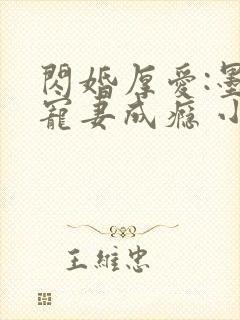 閃婚厚愛:墨
寵妻成癮 小
王維忠